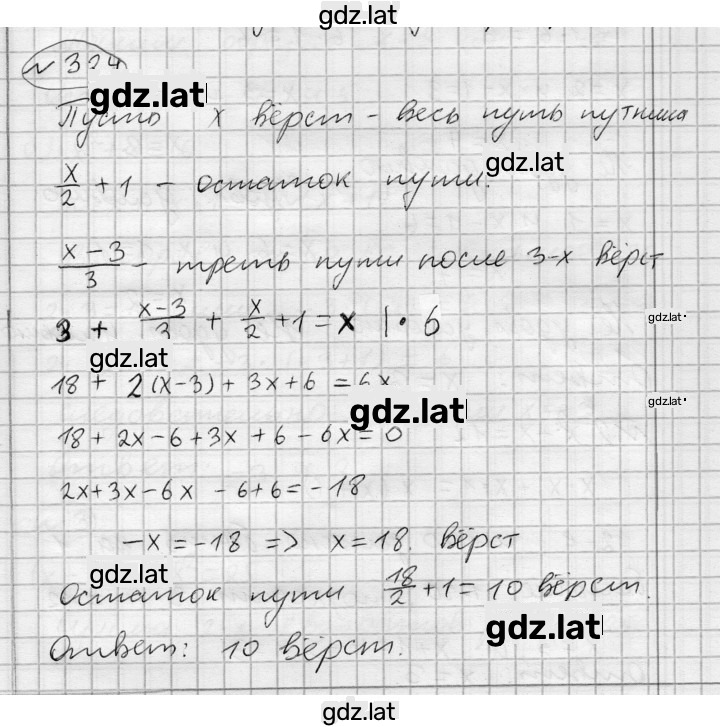 gdz.lat
№ 324
gdz.lat
Пусть x вёрст - весь путь путника
gdz.lat
x/2 + 1 - остаток пути.
(x - 3)/3 - треть пути после 3-х вёрст
3 + (x-3)/3 + x/2 + 1 = x | · 6
gdz.lat
gdz.lat
18 + 2(x-3) + 3x + 6 = 6x
gdz.lat
gdz.lat
18 + 2x - 6 + 3x + 6 - 6x = 0
2x + 3x - 6x - 6 + 6 = -18
-x = -18 => x = 18. вёрст
gdz.lat
Остаток пути 18/2 + 1 = 10 вёрст.
gdz.lat
Ответ: 10 вёрст.
gdz.lat